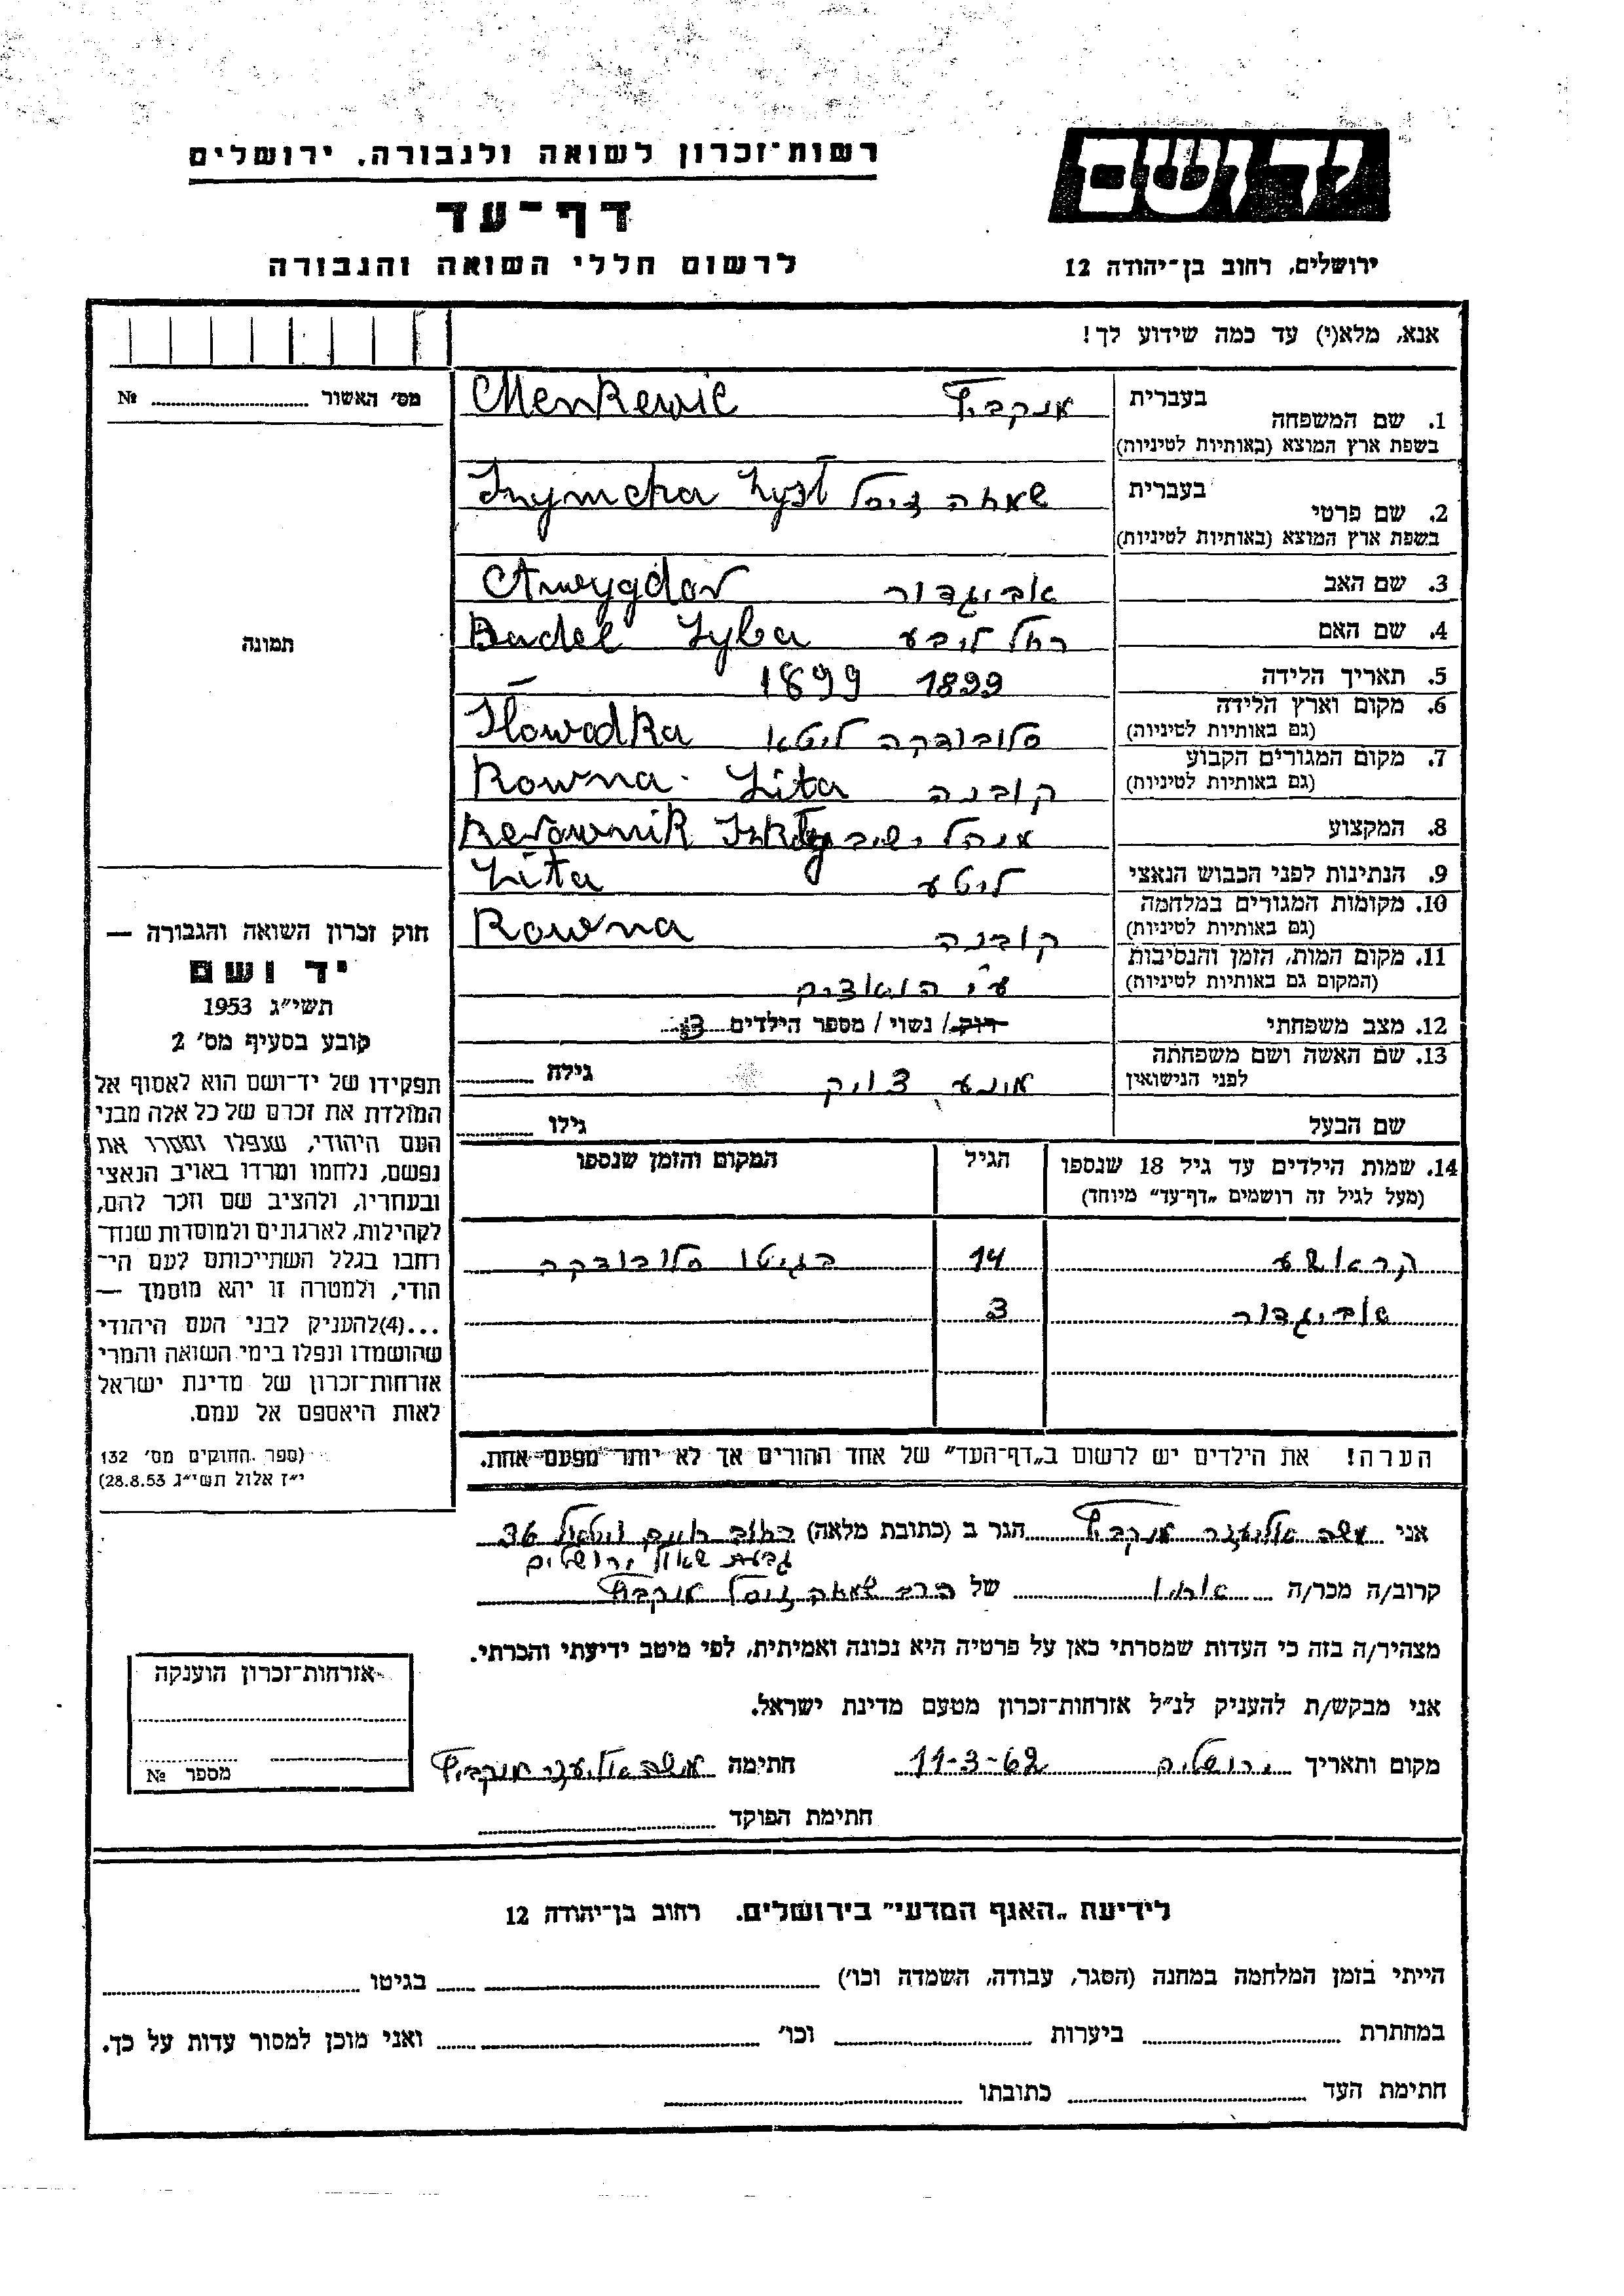 רשות־זכרון לשואה ולגבורה, ירושלים
דף־עד
לרשום חללי השואה והגבורה
יד ושם
ירושלים, רחוב בן־יהודה 12
אנא, מלא(י) עד כמה שידוע לך!
מס׳ האשור № 
1. שם המשפחה בעברית מנקביץ Menkewic
בשפת ארץ המוצא (באותיות לטיניות)
2. שם פרטי בעברית שמחה זיסל
בשפת ארץ המוצא (באותיות לטיניות)
3. שם האב אביגדור Awygdor
4. שם האם רחל ליבע Lyba
5. תאריך הלידה 1899 1899
6. מקום וארץ הלידה סלובודקה ליטא
(גם באותיות לטיניות)
7. מקום המגורים הקבוע קובנה Kowna - Lita
(גם באותיות לטיניות)
8. המקצוע מנהל ישיבה
9. הנתינות לפני הכבוש הנאצי ליטע Lita
10. מקומות המגורים במלחמה קובנה Kowna
(גם באותיות לטיניות)
11. מקום המות, הזמן והנסיבות ע״י הנאצים
(המקום גם באותיות לטיניות)
12. מצב משפחתי רווק / נשוי / מספר הילדים 3
13. שם האשה ושם משפחתה גילה
לפני הנישואין
שם הבעל גילו
תמונה
חוק זכרון השואה והגבורה —
יד ושם
תשי״ג 1953
קובע בסעיף מס׳ 2
תפקידו של יד־ושם הוא לאסוף אל
המולדת את זכרם של כל אלה מבני
העם היהודי, שנפלו ומסרו את
נפשם, נלחמו ומרדו באויב הנאצי
ובעוזריו, ולהציב שם וזכר להם,
לקהילות, לארגונים ולמוסדות שנח־
רבו בגלל השתייכותם לעם הי־
הודי, ולמטרה זו יהא מוסמך —
...(4)להעניק לבני העם היהודי
שהושמדו ונפלו בימי השואה והמרי
אזרחות־זכרון של מדינת ישראל
לאות היאספם אל עמם.
(ספר החוקים מס׳ 132
י״ז אלול תשי״ג 28.8.53)
14. שמות הילדים עד גיל 18 שנספו הגיל המקום והזמן שנספו
(מעל לגיל זה רושמים „דף־עד” מיוחד)
14 בגיטו סלובודקה
אביגדור 3
הערה! את הילדים יש לרשום ב„דף־העד” של אחד ההורים אך לא יותר מפעם אחת.
אני משה אליעזר מנקביץ הגר ב (כתובת מלאה) רחוב חיים ויטאל 36
גבעת שאול ירושלים
קרוב/ה מכר/ה של הרב שמחה זיסל מנקביץ
מצהיר/ה בזה כי העדות שמסרתי כאן על פרטיה היא נכונה ואמיתית, לפי מיטב ידיעתי והכרתי.
אני מבקש/ת להעניק לנ״ל אזרחות־זכרון מטעם מדינת ישראל.
מקום ותאריך ירושלים 11-3-62 חתימה משה אליעזר מנקביץ
חתימת הפוקד
אזרחות־זכרון הוענקה
מספר №
לידיעת „האגף המדעי” בירושלים. רחוב בן־יהודה 12
הייתי בזמן המלחמה במחנה (הסגר, עבודה, השמדה וכו׳) בגיטו
במחתרת ביערות וכו׳ ואני מוכן למסור עדות על כך.
חתימת העד כתובתו